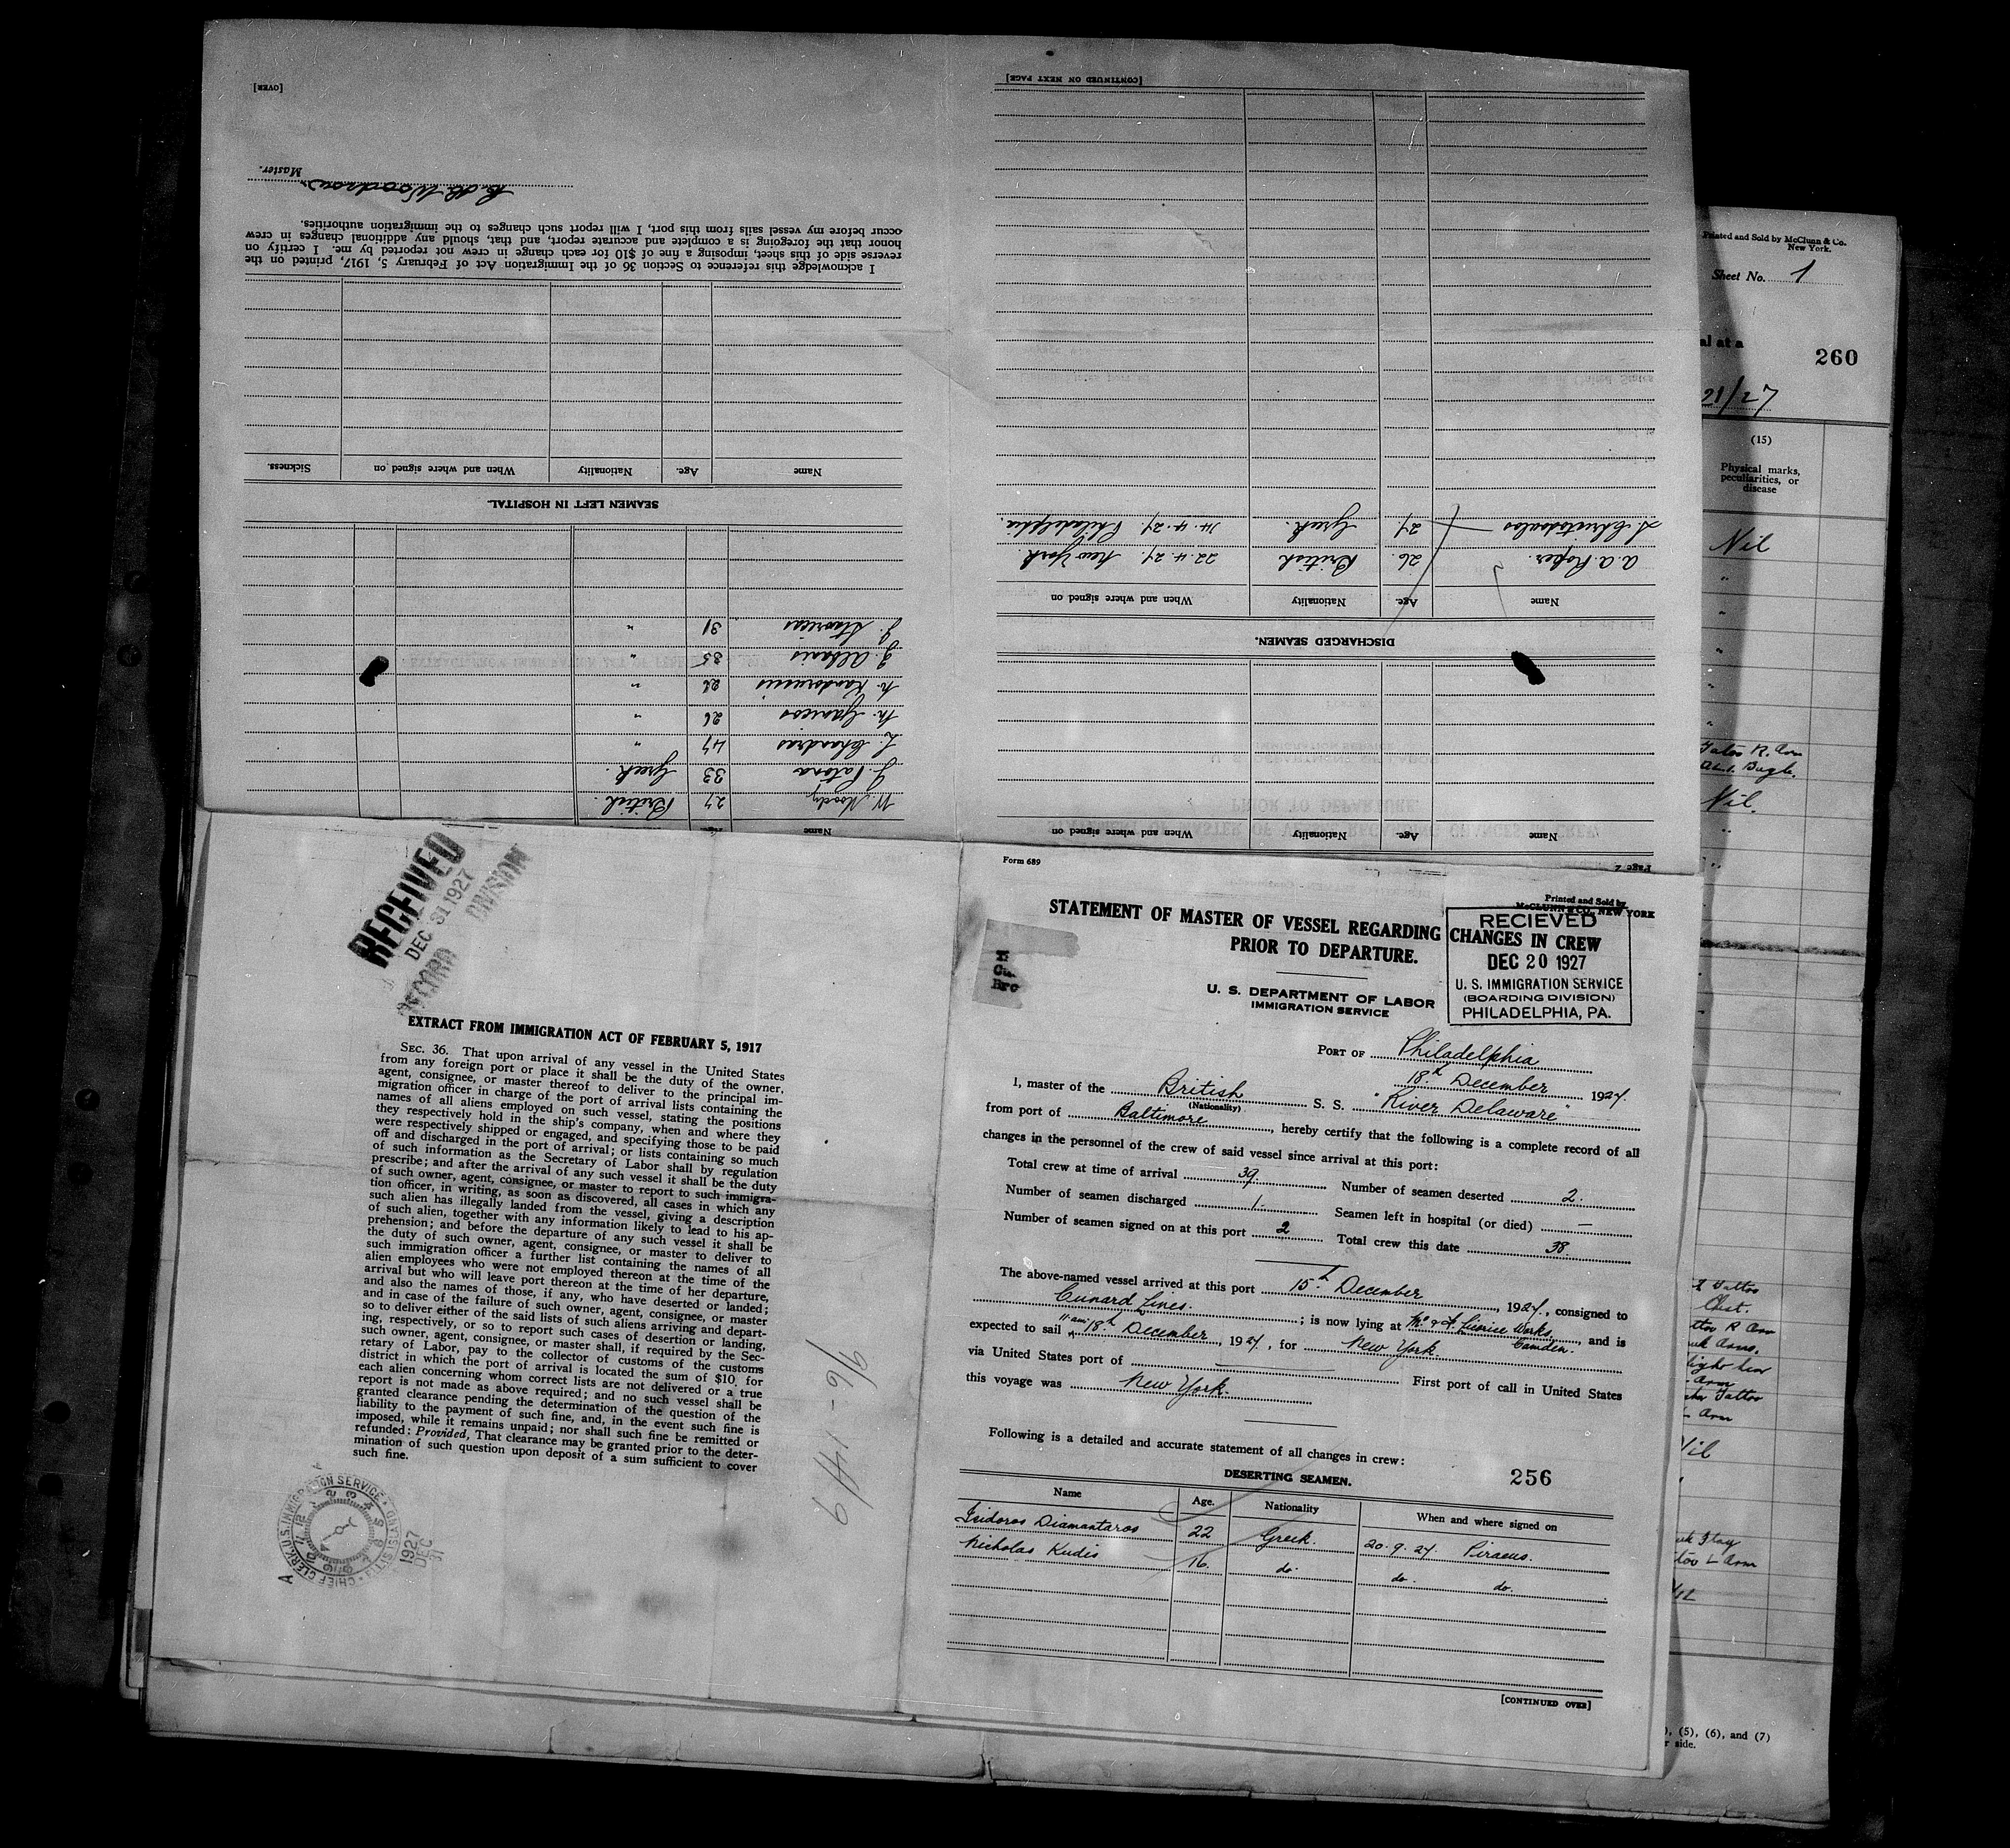 [OVER]
Master.
I acknowledge this reference to Section 36 of the Immigration Act of February 5, 1917, printed on the
reverse side of this sheet, imposing a fine of $10 for each change in crew not reported by me. I certify on
honor that the foregoing is a complete and accurate report, and that, should any additional changes in crew
occur before my vessel sails from this port, I will report such changes to the immigration authorities.
SEAMEN LEFT IN HOSPITAL.
Name Age. Nationality When and where signed on Sickness.
Name
W. Moody 27 British.
33 Greek.
L. Chandris 47 "
26 "
"
35 "
31 "
[CONTINUED ON NEXT PAGE]
Page 2
Name Age. Nationality When and where signed on
DISCHARGED SEAMEN.
Name Age. Nationality When and where signed on
A. A. Roper. 26. British 22.4.27. New York.
27. Greek. 14.4.27. Philadelphia.
Printed and Sold by McClunn & Co.
New York.
Sheet No. 1
al at a
260
21/27
(15)
Physical marks,
peculiarities, or
disease
Nil
"
"
"
"
"
Nil
"
RECEIVED
DEC 31 1927
RECORD DIVISION
EXTRACT FROM IMMIGRATION ACT OF FEBRUARY 5, 1917
SEC. 36. That upon arrival of any vessel in the United States
from any foreign port or place it shall be the duty of the owner,
agent, consignee, or master thereof to deliver to the principal im-
migration officer in charge of the port of arrival lists containing the
names of all aliens employed on such vessel, stating the positions
they respectively hold in the ship's company, when and where they
were respectively shipped or engaged, and specifying those to be paid
off and discharged in the port of arrival; or lists containing so much
of such information as the Secretary of Labor shall by regulation
prescribe; and after the arrival of any such vessel it shall be the duty
of such owner, agent, consignee, or master to report to such immigra-
tion officer, in writing, as soon as discovered, all cases in which any
such alien has illegally landed from the vessel, giving a description
of such alien, together with any information likely to lead to his ap-
prehension; and before the departure of any such vessel it shall be
the duty of such owner, agent, consignee, or master to deliver to
such immigration officer a further list containing the names of all
alien employees who were not employed thereon at the time of the
arrival but who will leave port thereon at the time of her departure,
and also the names of those, if any, who have deserted or landed;
and in case of the failure of such owner, agent, consignee, or master
so to deliver either of the said lists of such aliens arriving and depart-
ing, respectively, or so to report such cases of desertion or landing,
such owner, agent, consignee, or master shall, if required by the Sec-
retary of Labor, pay to the collector of customs of the customs
district in which the port of arrival is located the sum of $10. for
each alien concerning whom correct lists are not delivered or a true
report is not made as above required; and no such vessel shall be
granted clearance pending the determination of the question of the
liability to the payment of such fine, and, in the event such fine is
imposed, while it remains unpaid; nor shall such fine be remitted or
refunded: Provided, That clearance may be granted prior to the deter-
mination of such question upon deposit of a sum sufficient to cover
such fine.
CHIEF CLERK, U.S. IMMIGRATION SERVICE
1927
DEC
31
Form 689
Printed and Sold by
McCLUNN & CO., NEW YORK
STATEMENT OF MASTER OF VESSEL REGARDING CHANGES IN CREW
PRIOR TO DEPARTURE.
U. S. DEPARTMENT OF LABOR
IMMIGRATION SERVICE
RECIEVED
DEC 20 1927
U. S. IMMIGRATION SERVICE
(BOARDING DIVISION)
PHILADELPHIA, PA.
PORT OF Philadelphia
18th December 1927
I, master of the British S. S. "River Delaware"
(Nationality)
from port of Baltimore, hereby certify that the following is a complete record of all
changes in the personnel of the crew of said vessel since arrival at this port:
Total crew at time of arrival 39. Number of seamen deserted 2.
Number of seamen discharged 1. Seamen left in hospital (or died) —
Number of seamen signed on at this port 2 Total crew this date 38.
The above-named vessel arrived at this port 15th December, 1927, consigned to
Cunard Lines.; is now lying at Mc & F. Licorice Works, Camden. and is
expected to sail 11 am 18th December, 1927, for New York.
via United States port of — First port of call in United States
this voyage was New York.
Following is a detailed and accurate statement of all changes in crew:
DESERTING SEAMEN. 256
Name Age. Nationality When and where signed on
Isidoros Diamantaros 22 Greek. 20.9.27 Piraeus.
Nicholas Kudis 16. do. do. do.
[CONTINUED OVER]
), (5), (6), and (7)
r side.